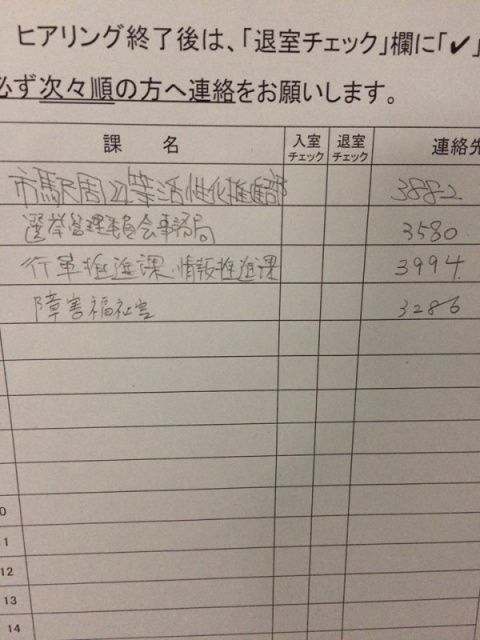 ヒアリング終了後は、「退室チェック」欄に「✔」
必ず次々順の方へ連絡をお願いします。
課 名 入室チェック 退室チェック 連絡先
市駅周辺等活性化推進部 3882
選挙管理委員会事務局 3580
行革推進課・情報推進課 3994
障害福祉室 3286
0
1
12
13
14